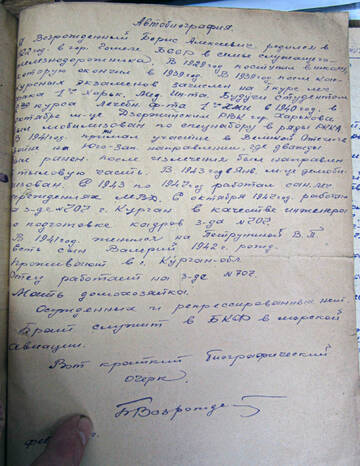 Автобиография.
Я Возрожденный Борис Алексеевич родился в
году в гор. Гомеле БССР в семье служащего
железнодорожника. В 1929 году поступил в школу,
которую окончил в 1939 году. В 1939 году после кон-
курсных экзаменов зачислен на 1 курс лес.
1го Харьк. Мед. Ин-та. Будучи студентом
курса Лечебн. ф-та 1го ХМИ в 1940 году. в
октябре м-це Дзержинским РВК гор. Харькова
был мобилизован по спецнабору в ряды РККА
В 1941 году принимал участие в Великой Отечеств.
войне на Юго-Зап. направлении, где дважды
был ранен. После излечения был направлен
в тыловую часть. В 1943 году Янв. м-це демоби-
лизован. С 1943 по 1947 год работал
МВД. С октября 1947 год. работаю
з-де №707 г. Курган в качестве инженера
по подготовке кадров з-да №707
В 1941 году женился на Петрушиной В. П.
есть сын Валерий 1942 г. рожд.
Проживают в г. Курган-обл.
Отец работает на з-де №707.
Мать домохозяйка.
Осужденных и репрессированных нет.
Брат служит в БКФ в морской
авиации.
Вот краткий биографический
очерк.
БВозрожде